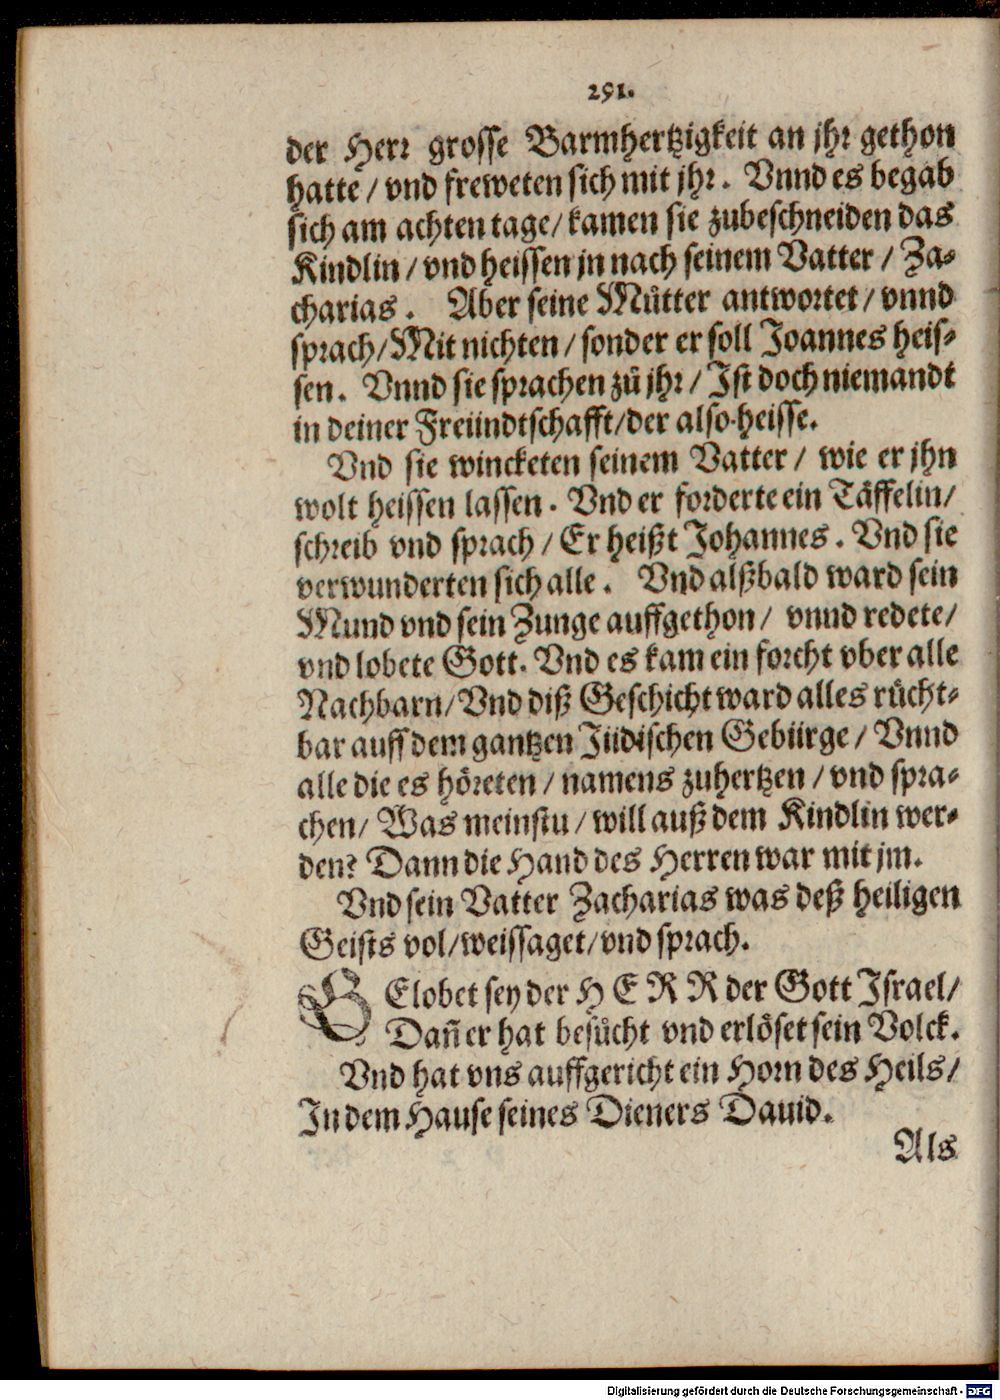 291.
der Herr grosse Barmhertzigkeit an jhr gethon
hatte / vnd freweten sich mit jhr. Vnnd es begab
sich am achten tage / kamen sie zubeschneiden das
Kindlin / vnd heissen jn nach seinem Vatter / Za-
charias. Aber seine Můtter antwortet / vnnd
sprach / Mit nichten / sonder er soll Joannes heis-
sen. Vnnd sie sprachen zů jhr / Ist doch niemandt
in deiner Freündtschafft / der also heisse.
Vnd sie wincketen seinem Vatter / wie er jhn
wolt heissen lassen. Vnd er forderte ein Täffelin /
schreib vnd sprach / Er heißt Johannes. Vnd sie
verwunderten sich alle. Vnd alßbald ward sein
Mund vnd sein Zunge auffgethon / vnnd redete /
vnd lobete Gott. Vnd es kam ein forcht vber alle
Nachbarn / Vnd diß Geschicht ward alles rücht-
bar auff dem gantzen Jüdischen Gebürge / Vnnd
alle die es höreten / namens zuhertzen / vnd spra-
chen / Was meinstu / will auß dem Kindlin wer-
den? Dann die Hand des Herren war mit jm.
Vnd sein Vatter Zacharias was deß heiligen
Geists vol / weissaget / vnd sprach.
GElobet sey der HERR der Gott Israel /
Dañ er hat besůcht vnd erlöset sein Volck.
Vnd hat vns auffgericht ein Horn des Heils /
In dem Hause seines Dieners Dauid.
Als
Digitalisierung gefördert durch die Deutsche Forschungsgemeinschaft - DFG